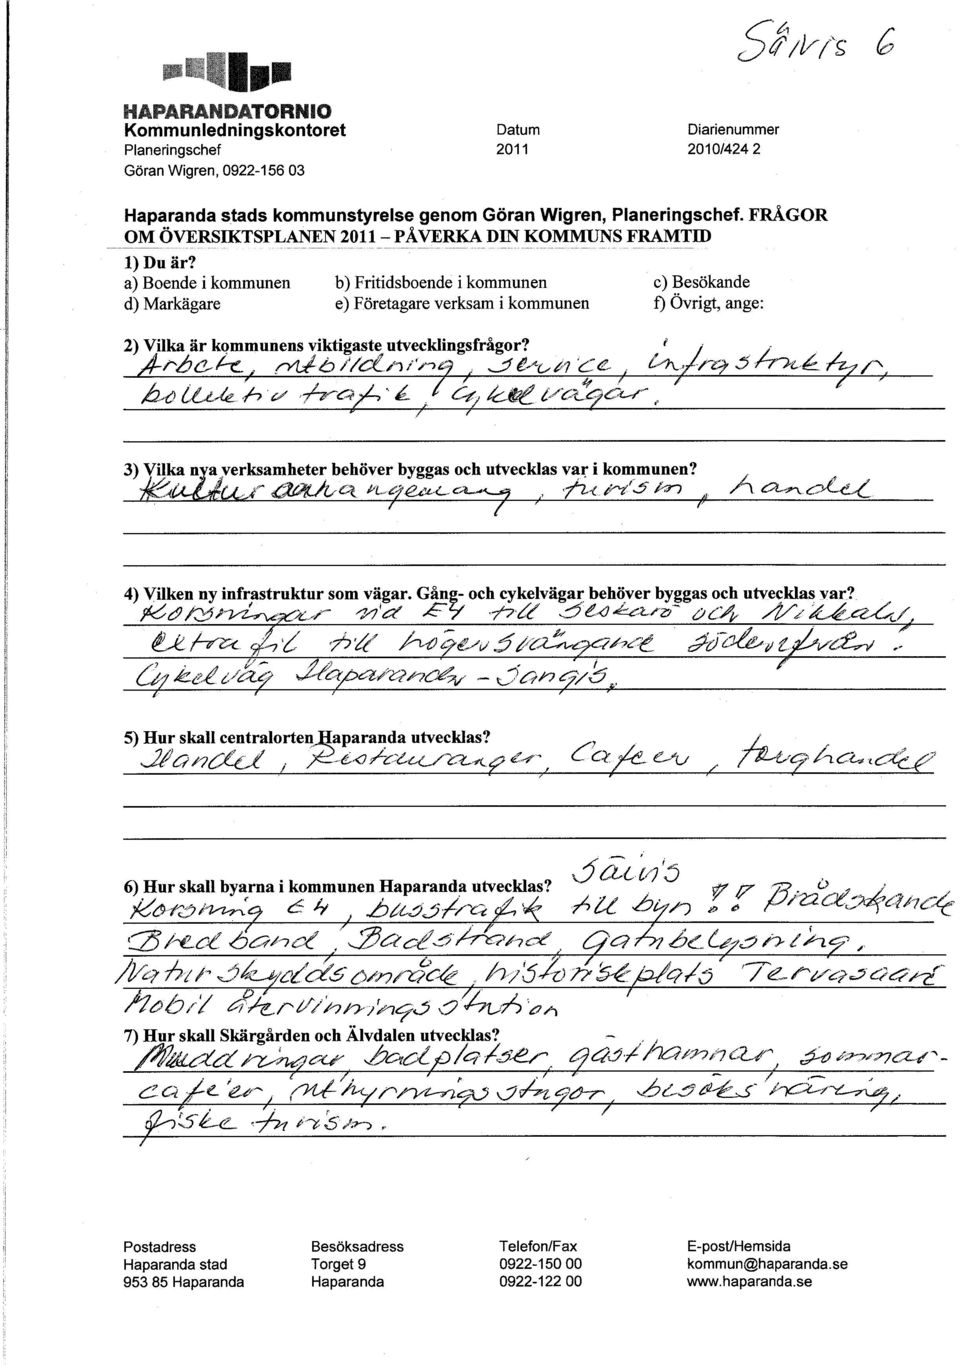 Säivis 6
HAPARANDATORNIO
Kommunledningskontoret
Datum Diarienummer
Planeringschef 2011 2010/424 2
Göran Wigren, 0922-156 03
Haparanda stads kommunstyrelse genom Göran Wigren, Planeringschef. FRÅGOR
OM ÖVERSIKTSPLANEN 2011 – PÅVERKA DIN KOMMUNS FRAMTID
1) Du är?
a) Boende i kommunen b) Fritidsboende i kommunen c) Besökande
d) Markägare e) Företagare verksam i kommunen f) Övrigt, ange:
2) Vilka är kommunens viktigaste utvecklingsfrågor?
Arbete, utbildning, service, infrastruktyr,
kollektiv trafik, cykelvägar.
3) Vilka nya verksamheter behöver byggas och utvecklas var i kommunen?
Kultur turism, handel
4) Vilken ny infrastruktur som vägar. Gång- och cykelvägar behöver byggas och utvecklas var?
Korsningar vid E4 till Seskarö och Nikkala,
extra fil till högersvängande
Cykelväg Haparanda - Sangis.
5) Hur skall centralorten Haparanda utvecklas?
Handel, Restauranger, Cafeer, torghandel
6) Hur skall byarna i kommunen Haparanda utvecklas? Säivis
Korsning E4, busstrafik till byn !! Brådskande
Bredband, Badstrand, Gatubelysning,
Naturskyddsområde, historisk plats Tervasaari
Mobil återvinningsstation
7) Hur skall Skärgården och Älvdalen utvecklas?
Muddringar badplatser, gästhamnar, sommar-
cafeer, uthyrningsstugor, besöksnäring,
fisketurism.
Postadress Besöksadress Telefon/Fax E-post/Hemsida
Haparanda stad Torget 9 0922-150 00 kommun@haparanda.se
953 85 Haparanda Haparanda 0922-122 00 www.haparanda.se